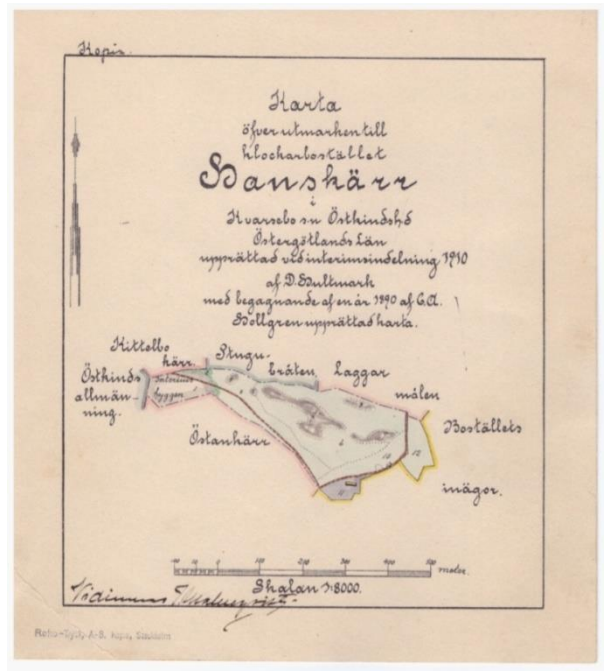 Kopia.
Karta
öfver utmarken till
klockarbostället
Hanskärr
i
Kvarsebo sn Östkinds hd
Östergötlands Län
upprättad vid interimsindelning 1910
af D. Hultmark
med begagnande af en år 1890 af C. A.
Hollgren upprättad karta.
Kittelbo
kärr.
Stugu-
bråten
Laggar
målen
Östkinds
allmän-
ning.
Östankärr
Boställets
inägor.
100 50 0 100 200 300 400 500 meter.
Skalan 1:8000.
Vidimeras